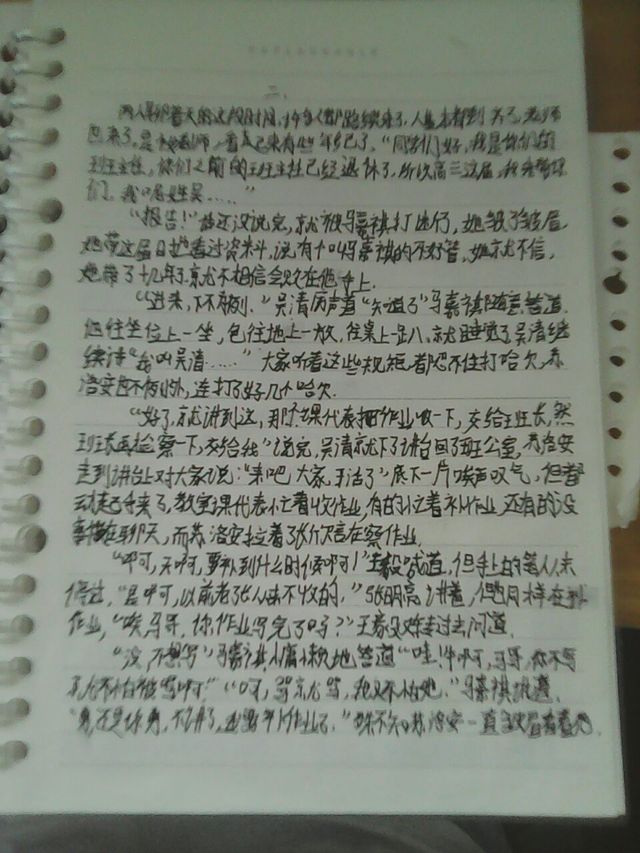 二、
两人聊那普天的这段时间，许多人都陆续来了，人基本都到齐了，老师
也来了，是个女老师，看起来有些年纪了。“同学们好，我是你们的
班主任，你们之前的班主任已经退休了，所以高三这届，我来带你
们，我呢姓吴……”
“报告！”话还没说完，就被马嘉祺打断，她皱了皱眉，
她带这届日她看过资料，说有个叫马嘉祺的不好管，她就不信，
她带了十几年了，就不相信会败在他手上。
“进来，下不为例。”吴清厉声道“知道了”马嘉祺随意答道，
但往坐位上一坐，包往地上一放，往桌上一趴，就睡觉了，吴清继
续讲“我叫吴清……”大家听着这些规矩，都忍不住打哈欠，苏
洛安也不例外，连打了好几个哈欠。
“好了，就讲到这，那个课代表把作业收一下，交给班长，然
班长再检察一下，交给我”说完，吴清就下了讲台回了班公室，苏洛安
走到讲台上对大家说：“来吧大家，干活了”底下一片唉声叹气，但都
动起手来了，教室课代表忙着收作业，有的忙着补作业，还有的没
事情在聊天，而苏洛安拉着了张欣言在察作业。
“啊，天啊，要补到什么时候啊！”喊道，但手上的笔从未
停过，“是啊，以前老张从来不收的。”张明高讲着，但同样在补
作业，“唉马哥，你作业写完了吗？”王转过去问道。
“没，不想写”马嘉祺慵懒地答道“哇！牛啊，马哥，你不写
就不怕被骂啊”“啊，骂就骂，我又不怕她。”马嘉祺说道。
不讲了，补作业了。”殊不知苏洛安一直皱眉看着他。